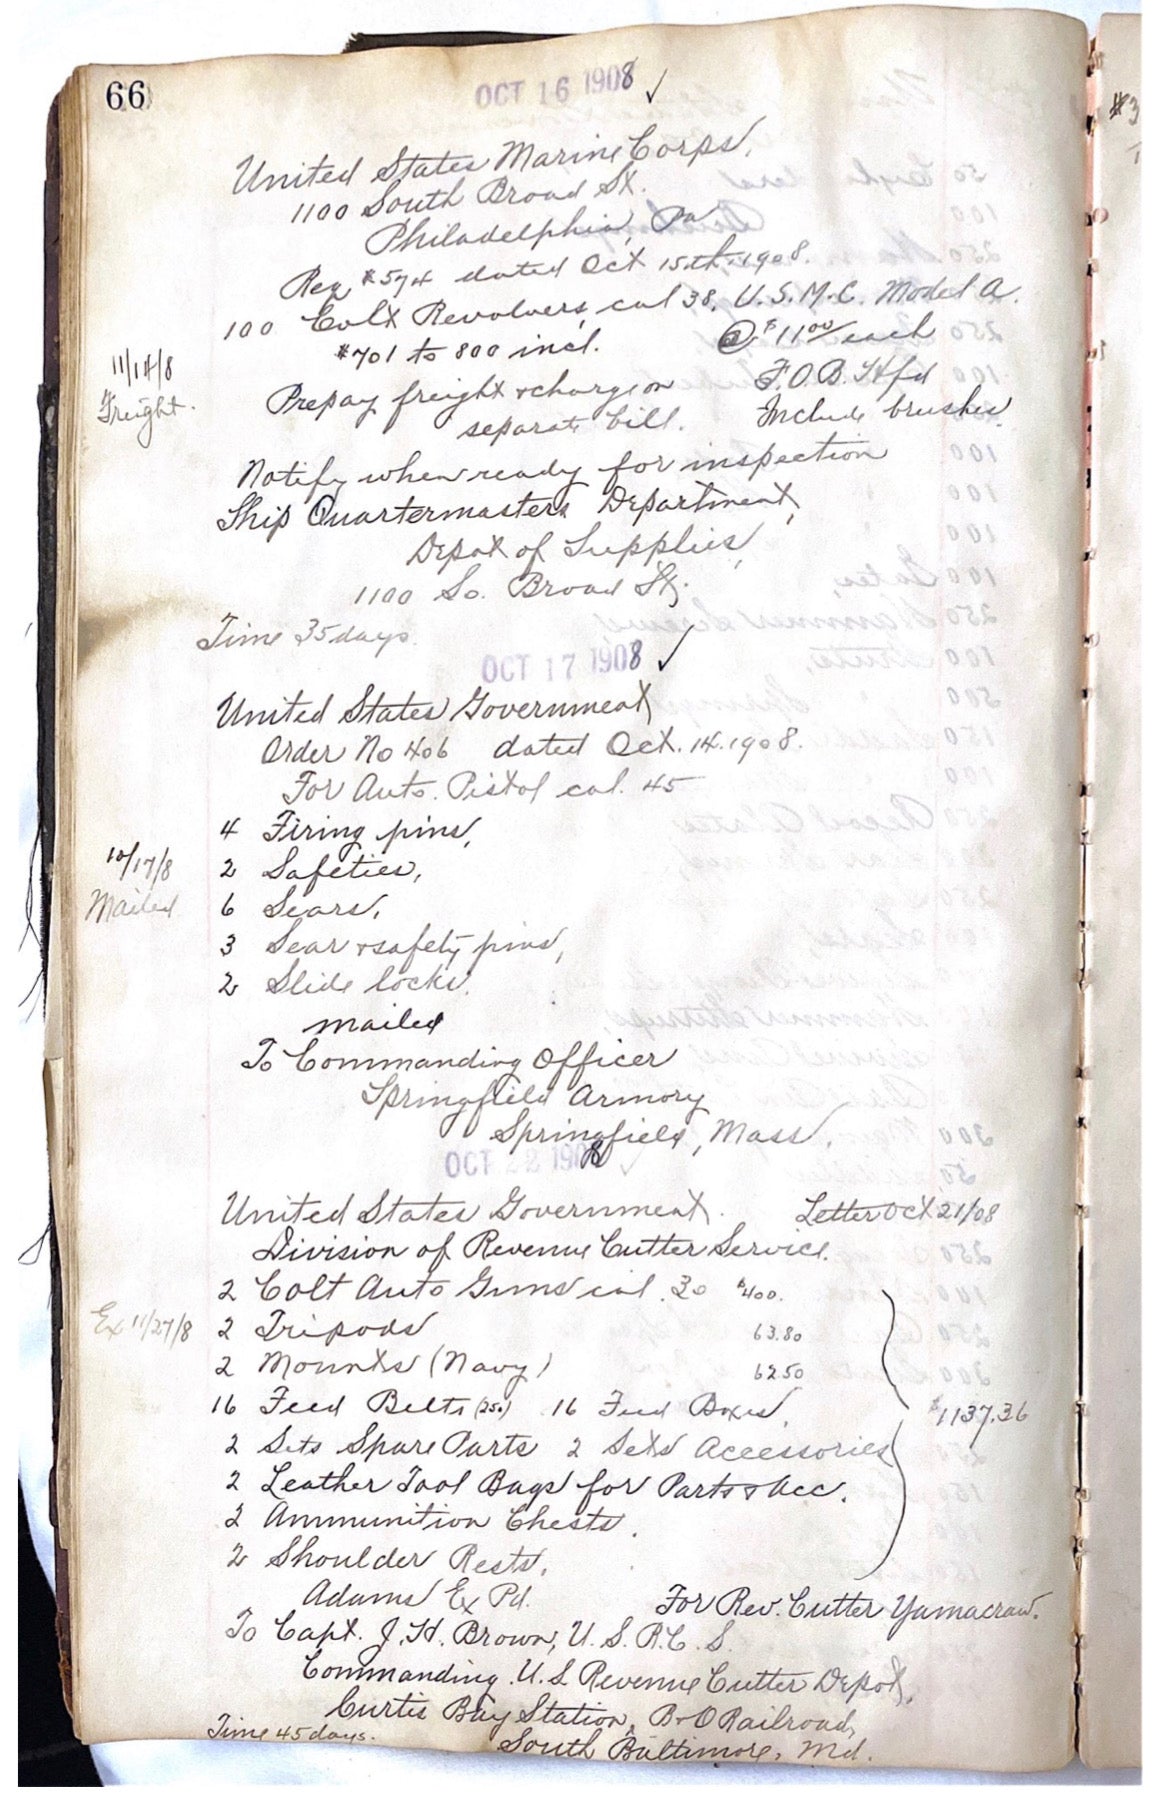 66
OCT 16 1908 ✓
United States Marine Corps,
1100 South Broad St.
Philadelphia, Pa
Req #574 dated Oct 15th. 1908.
100 Colt Revolvers, cal 38, U.S.M.C. Model A.
#701 to 800 incl. @ $11 00/ each
11/14/8
Freight.
Prepay freight & charge on F.O.B. Htfd
separate bill. Include brushes.
Notify when ready for inspection
Ship Quartermasters Department,
Depot of Supplies,
1100 So. Broad St.
Time 35 days.
OCT 17 1908 ✓
United States Government
Order No 406 dated Oct. 14. 1908.
For Auto. Pistol cal. 45
4 Firing pins,
10/17/8
Mailed
2 Safeties,
6 Sears,
3 Sear & safety pins,
2 Slide locks.
mailed
To Commanding Officer
Springfield Armory
Springfield, Mass.
OCT 22 1908 ✓
United States Government. Letter Oct 21/08
Division of Revenue Cutter Service.
2 Colt Auto Guns cal. 30 $400.
Ex 11/27/8
2 Tripods 63.80
2 Mounts (Navy) 62.50
16 Feed Belts (250) 16 Feed Boxes, $1137.36
2 Sets Spare Parts 2 Sets Accessories
2 Leather Tool Bags for Parts & Acc.
2 Ammunition Chests.
2 Shoulder Rests.
Adams Ex Pd. For Rev. Cutter Yamacraw.
To Capt. J. H. Brown, U. S. R. C. S.
Commanding U.S Revenue Cutter Depot,
Curtis Bay Station, B & O Railroad,
Time 45 days. South Baltimore, Md.
#3